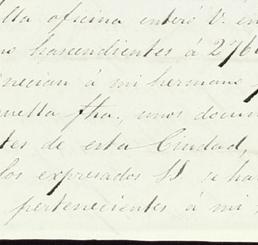 lla oficina enteré V. en
hascendientes á 276
necian á mi hermano
uella fha, unos docum
tes de esta Ciudad,
los expresados SS se ha
pertenecientes á mi